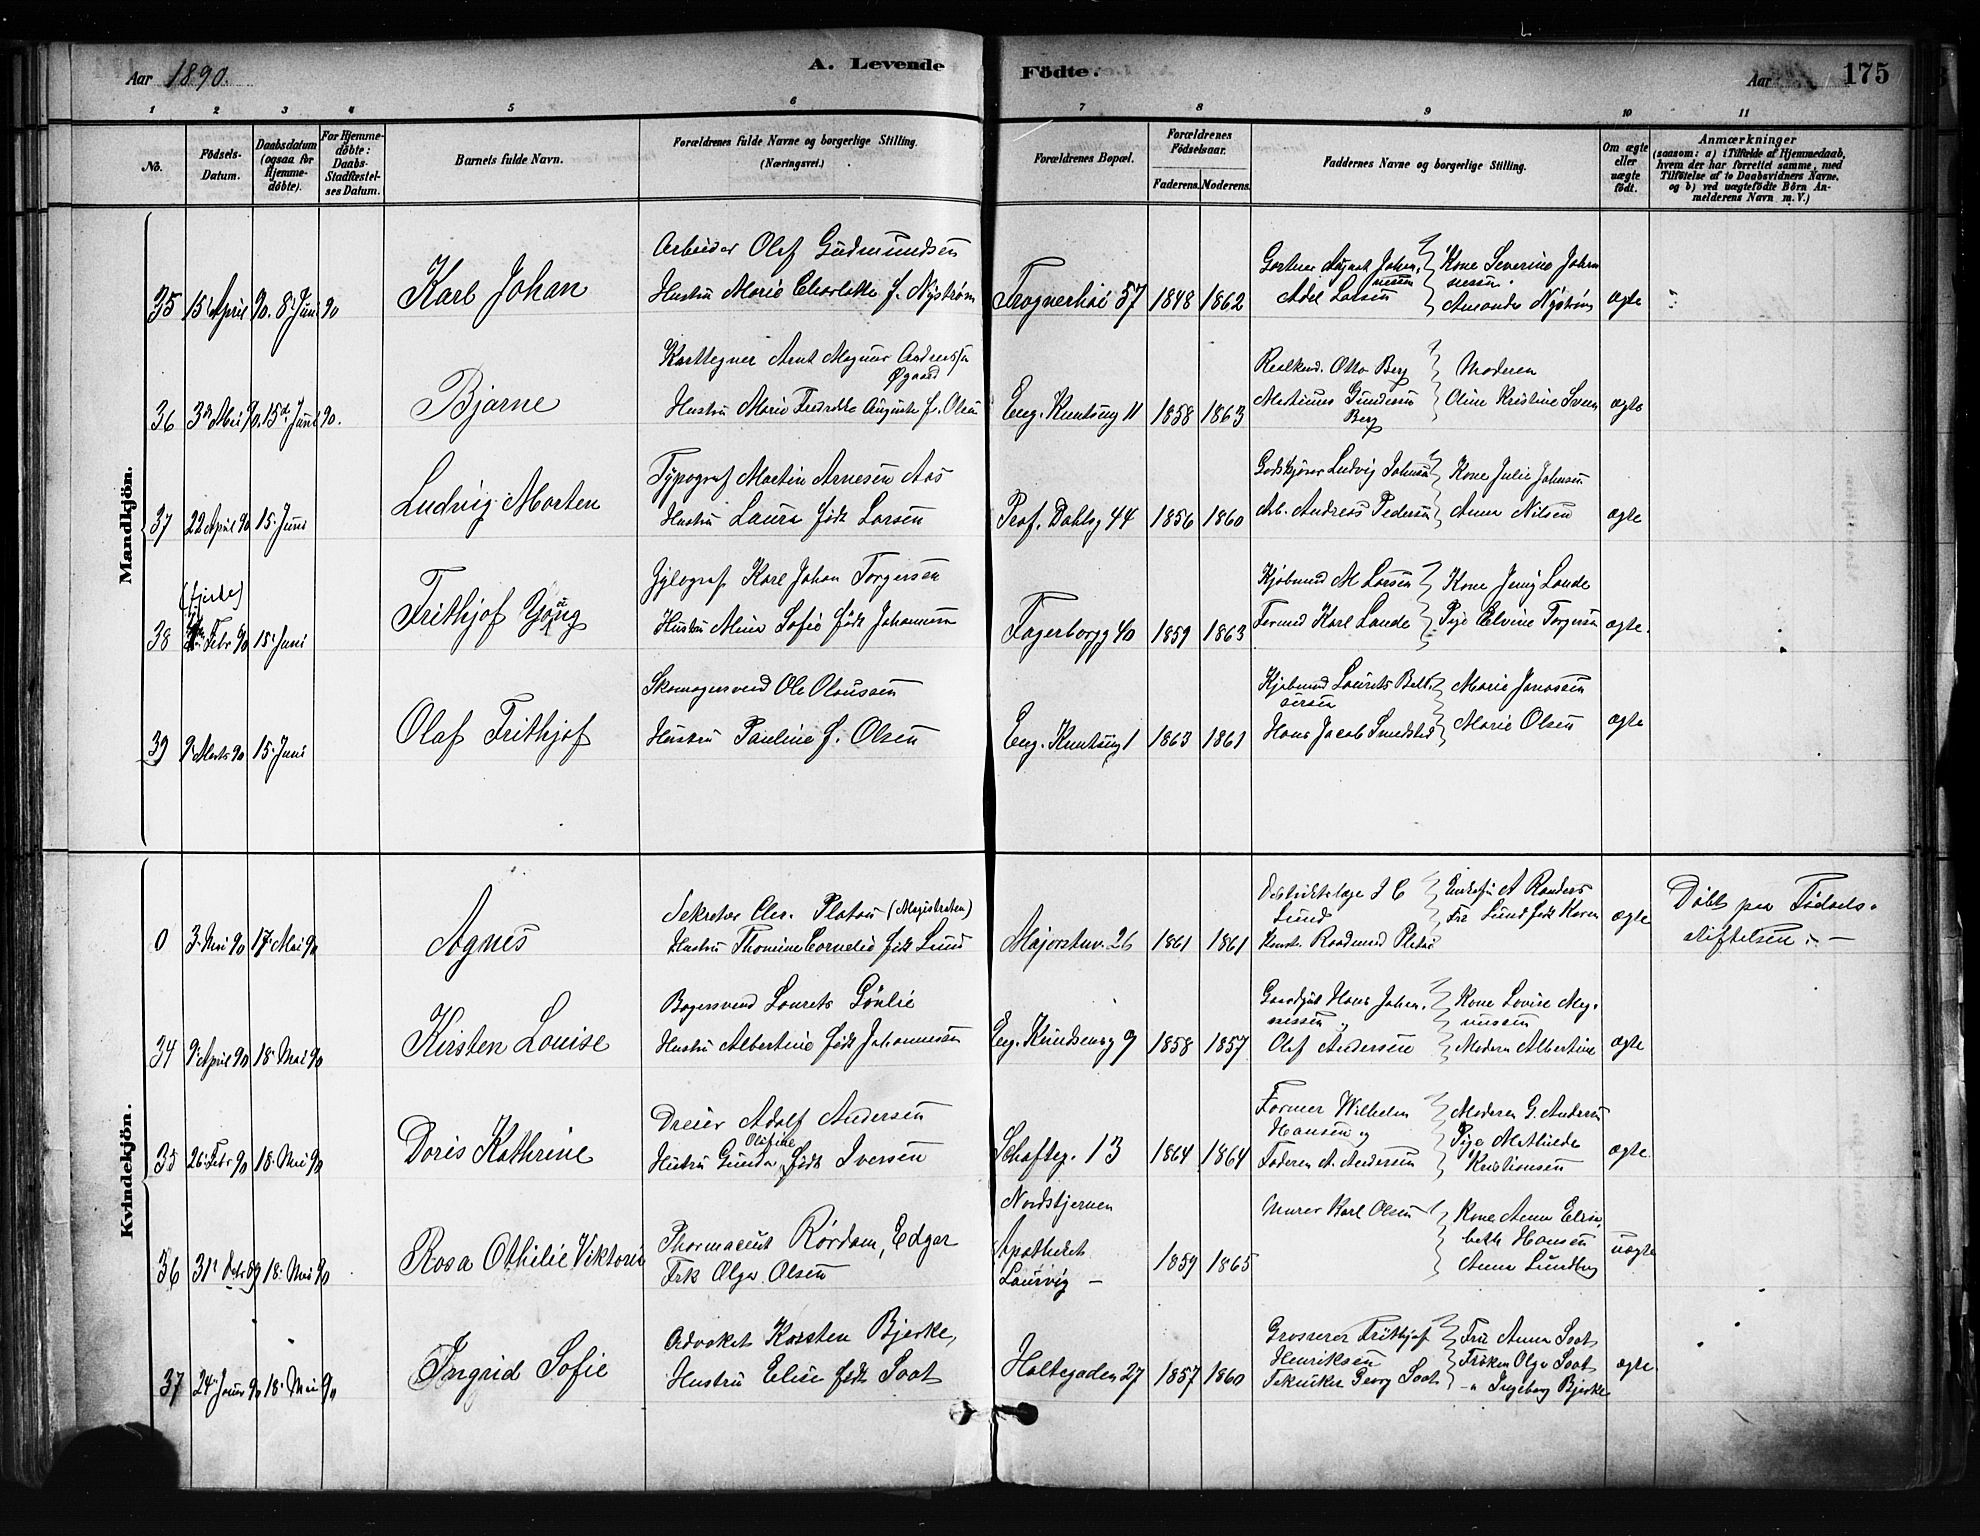 Aar 1890.
A. Levende
Födte.
Aar
175
1 2 3 4 5 6 7 8 9 10 11
No.
Födsels-Datum.
Daabsdatum (ogsaa for Hjemme-döbte).
For Hjemme-döbte: Daabs-Stadfæstel-ses Datum.
Barnets fulde Navn.
Forældrenes fulde Navne og borgerlige Stilling. (Næringsvei.)
Forældrenes Bopæl.
Forældrenes Födselsaar.
Faderens. Moderens.
Faddernes Navne og borgerlige Stilling.
Om ægte eller uægte födt.
Anmærkninger
(saasom: a) i Tilfælde af Hjemmedaab, hvem der har forrettet samme, med Tilföielse af to Daabsvidners Navne, og b) ved uægtefödte Börn An-melderens Navn m. V.)
Mandkjön.
35 15 April 90. 8 Juni 90
Karl Johan
Arbeider Olaf Gudmundsen
Hustru Marie Charlotte f. Nystrøm
Frognerhei 57 1848 1862
Gartner August Johan-nessen
Adel Larsen
Kone Severine Johan nessen
Amanda Nystrøm
ægte
36 3die Mai 90. 15de Juni 90.
Bjarne
Karttegner Arnt Magnus Andreassen Øgaard
Hustru Marie Fredrikke Auguste f. Olsen
Eug. Knutsvg 11 1858 1863
Otto Berg
Martinus Gundersen Berg
Moderen
Oline Kristine Svens
ægte
37 22 April 90 15 Juni
Ludvig Morten
Typograf Martin Arnesen Aas
Hustru Laura født Larsen
Prof. Dahlsg 44 1856 1860
Ludvig Johnsen
Arb. Andreas Pedersen
Kone Julie Johnsen
Anna Nilsen
ægte
(fjerde)
38 Febr 90 15 Juni
Frithjof Yöng
Xylograf Karl Johan Torgersen
Hustru Mina Sofie født Johannesen
Fagerborgg 40 1859 1863
Kjøbmd M Larsen
Formd Karl Lande
Kone Jenny Lande
Pige Elvine Torgersen
ægte.
39 9 Marts 90 15 Juni
Olaf Frithjof
Skomagersvend Ole Olaussen
Hustru Pauline f. Olsen
Eug. Knutsvg 1 1863 1861
Kjøbmd Laurits
Hans Jacob Smedstad
Marie Jonassen
Marie Olsen
ægte
Kvindekjön.
0 3 Mai 90 17 Mai 90
Agnes
Sekretær Chr. Platou (Magistraten)
Hustru Thomine Cornelia født Lund
Majorstuv. 26 1861 1861
Distriktslæge J C Lund
Platou
A Randers
Fru Lund født Koren
ægte
Døbt paa Fødsels-stiftelsen. —
34 9 April 90 18 Mai 90
Kirsten Louise
Bagersvend Laurets Gonlie
Hustru Albertine født Johannessen
Eug. Knudsensg 9 1858 1857
Gaardgut Hans Johan-nessen
Olaf Andersen
Kone Lovise Mag-nussen
Modern Albertine
ægte
35 26 Febr 90 18 Mai 90
Doris Kathrine
Dreier Adolf Andersen
Olufine
Hustru Gunda født Iversen
Schafteg. 13 1864 1864
Former Wilhelm Hansen og
Faderen A. Andersen
Moderen G. Andersen
Pige Mathilde Kristiansen
ægte.
36 31 89 18 Mai 90
Rosa Othilie Viktoria
Pharmaceut Rørdam, Edgar
Frk Olga Olsen
Nordstjernen Apotheket Laurvig — 1859 1865
Murer Karl Olsen
Kone Anna Elisa-beth Hansen
Anna Lundberg
uægte
37 24 Januar 90 18 Mai 90
Ingrid Sofie
Advokat Karsten Bjerke,
Hustru Elise født Soot
Holtegaden 27 1857 1860
Grosserer Frithjof Henriksen
Tekniker Georg Soot
Frue Anna Soot
Frøken Olga Soot
—" Ingeborg Bjerke
ægte